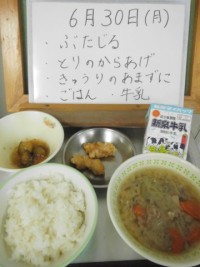 6月30日(月)
・ぶたじる
・とりのからあげ
・きゅうりのあまずに
・ごはん ・牛乳
牛乳